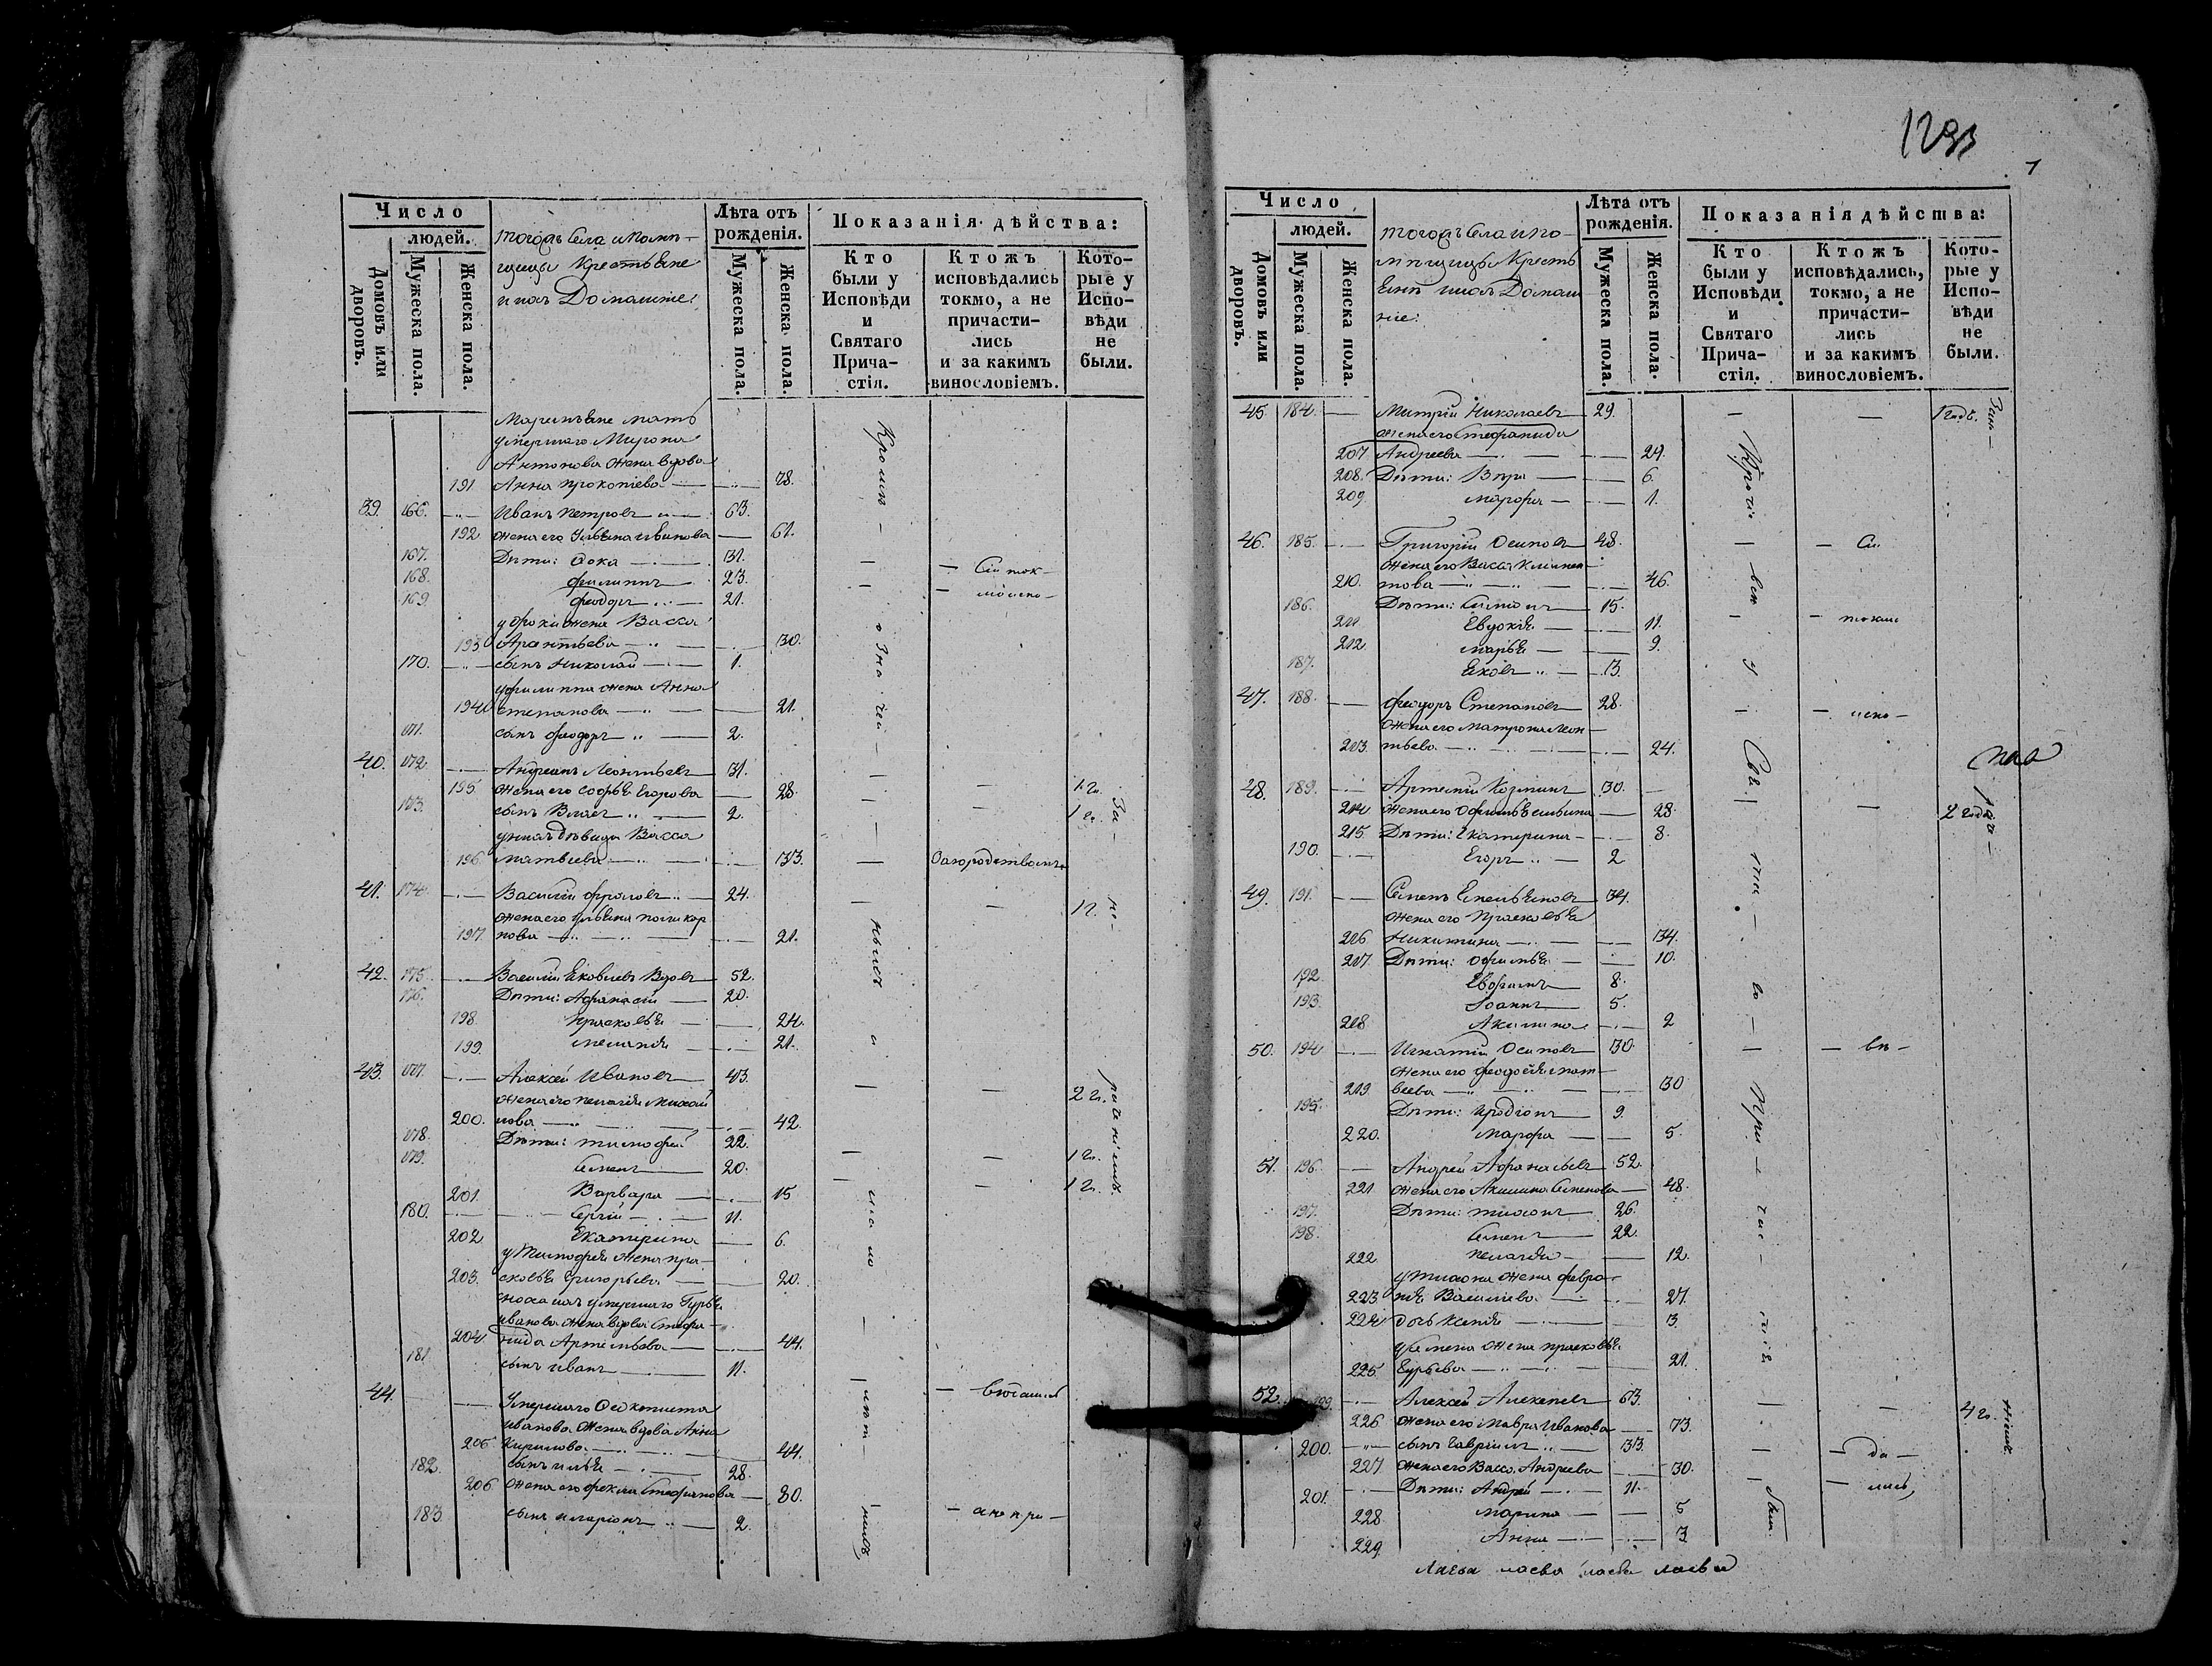 1293
1
Число
людей.
Домовъ или дворовъ.
Мужеска пола.
Женска пола.
тогожъ села и помѣ-
щицы Крестьяне
и ихъ Домашніе:
Лѣта отъ рожденія.
Мужеска пола.
Женска пола.
Показанія дѣйства:
Кто были у Исповѣди и Святаго Прича- стія.
Ктожъ исповѣдались токмо, а не причасти- лись и за какимъ винословіемъ.
Кото- рые у Испо- вѣди не были.
мать
умершаго Мирона
Антонова жена вдова
191 Анна Прокопіева 78.
39. 166. Иванъ Петровъ 63.
192 жена его Ульяна Иванова 61.
167. Дѣти: Фока 31.
168. Филиппъ 23.
169. Феодоръ 21.
у Фоки жена Васса
193 30.
170. сынъ Николай 1.
у Филиппа жена Анна
194 Степанова 21.
171. сынъ Феодоръ 2.
40. 172. Леонтьевъ 31.
195. жена его Софья Егорова 28. 1 г.
173. сынъ Власъ 2. 1 г.
у нихъ дѣвица Васса
196. Матвѣева 33.
41. 174. Василій Фроловъ 24. 1 г.
жена его Ульяна Поликар
197. пова 21.
42. 175. Василій Яковлевъ вдовъ 52.
176. Дѣти: Афанасій 20.
198. Прасковья 24.
199. Меланія 21.
43. 177. Алексѣй Ивановъ 43. 2 г.
жена его Пелагія Михай
200. лова 42.
178. Дѣти: Тимофей 22. 1 г.
179. Семенъ 20. 1 г.
201. Варвара 15
180. Сергій 11.
202 Екатерина 6.
у Тимофея жена Пра-
203. сковья Григорьева 20.
умершаго Гурья
Иванова жена вдова Степа-
204 нида Артемьева 44.
181 сынъ Иванъ 11.
44. Умершаго Феоктиста
Иванова жена вдова Анна
205 Кирилова 44.
182. сынъ Илья 28.
206 жена его Фекла Стефанова 30.
183. сынъ Иларіонъ 2.
Число
людей.
Домовъ или дворовъ.
Мужеска пола.
Женска пола.
тогожъ села и по-
мѣщицы Кресть
яне ихъ Домаш
ніе:
Лѣта отъ рожденія.
Мужеска пола.
Женска пола.
Показанія дѣйства:
Кто были у Исповѣди и Святаго Прича- стія.
Ктожъ исповѣдались, токмо, а не причасти- лись и за какимъ винословіемъ.
Кото- рые у Испо- вѣди не были.
45 184. Митрій Николаевъ 29. 1 годъ.
жена его Стефанида
207 Андреева 24.
208. Дѣти: Вѣра 6.
209. Марфа 1.
46. 185. Григорій Осиповъ 48.
жена его Васса Климен-
210. това 46.
186. Дѣти: Симонъ 15.
211. Евдокія 11.
212. Марья 9.
187. Яковъ 3.
47. 188. Феодоръ Степановъ 28.
жена его Матрона Леон-
213. тьева 24.
48. 189. Артемій 30. 2 года
214 жена его Офимья 28.
215. Дѣти: Екатерина 8.
190. Егоръ 2
49. 191. Семенъ Емельяновъ 34.
жена его Прасковья
216 Никитина 34.
217. Дѣти: Офимья 10.
192. 8.
193. Іоаннъ 5.
218 Акилина 2
50. 194 Игнатій Осиповъ 30.
жена его Феодосія Мат-
219. вѣева 30
195. Дѣти: Иродіонъ 9.
220. Марфа 5.
51. 196. Андрей Афанасьевъ 52.
221. жена его Акилина Семенова 48.
197. Дѣти: Тихонъ 26.
198. Семенъ 22.
222 Пелагія 12.
у Тихона жена Февро-
223. нія Васильева 27.
224 дочь Ксенія 3.
у Семена жена Прасковья
225. Гурьева 21.
52. 199. Алексѣй Алексѣевъ 63. 4 г.
226. жена его Мавра Иванова 73.
200. сынъ Гавріилъ 33.
227. жена его Васса Андреева 30.
201. Дѣти: Андрей 11.
228. Марина 5
229. Анна 3